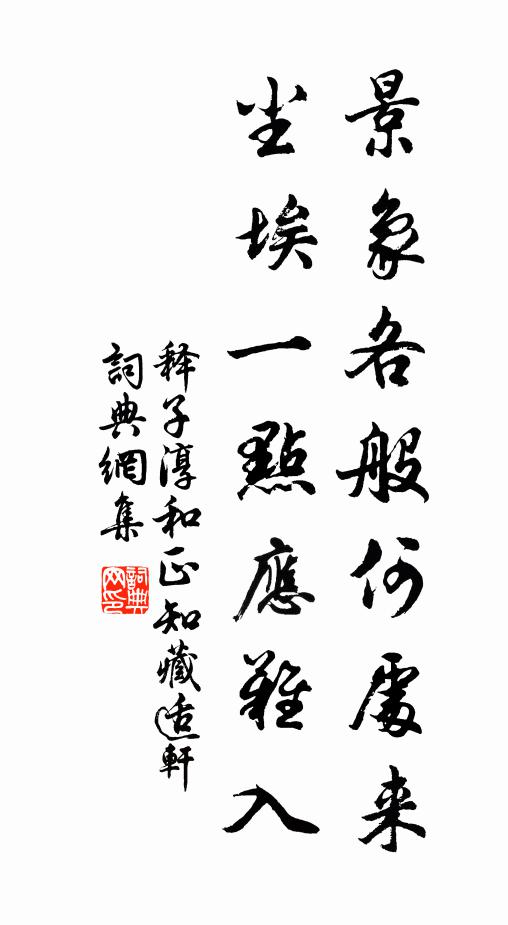 景象各般何處来
尘埃一點應難入
释子淳和正知藏适軒
詞典網集
詞典網印